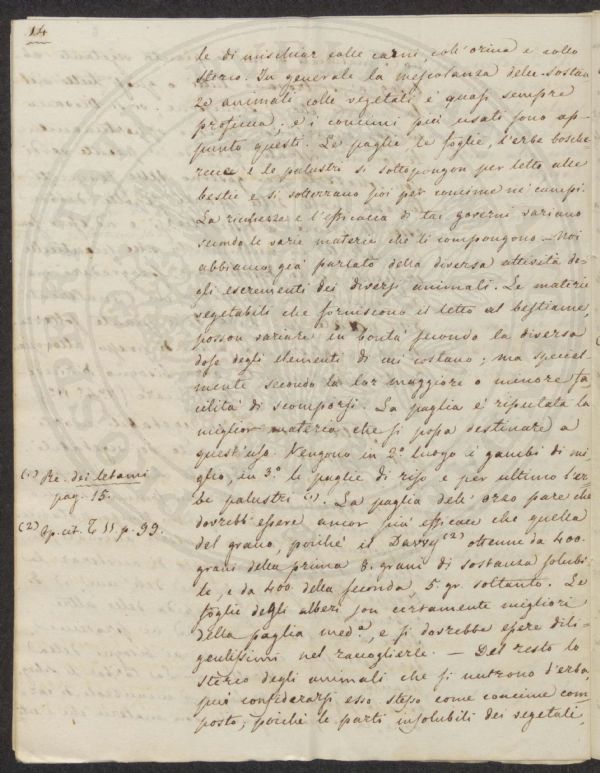 14
le di mischiar colle carni, coll'orina e collo
sterco. In generale la mescolanza delle sostan
ze animali colle vegetali è quasi sempre
proficua, e i concimi più usati sono ap-
punto questi. Le paglie, le foglie, l'erbe bosche
recce e le palustri si sottopongon per letto alle
bestie e si sotterrano poi per concime ne' campi.
La ricchezza e l'efficacia di tai governi variano
secondo le varie materie che li compongono. Noi
abbiamo già parlato della diversa attività de-
gli escrementi dei diversi animali. Le materie
vegetabili che forniscono il letto al bestiame,
posson variare in bontà secondo la diversa
dose degli elementi di cui costano; ma special-
mente secondo la lor maggiore o minore fa
cilità di scomporsi. La paglia è riputata la
miglior materia che si possa destinare a
quest'uso. Vengono in 2º luogo i gambi di mi
glio, in 3º le paglie di riso e per ultimo l'er
be palustri (1). La paglia dell'orzo pare che
dovrebb'essere ancor più efficace che quella
del grano, poichè il Davvy (2) ottenne da 400.
grani della prima 8. grani di sostanza solubi-
le, e da 400 della seconda, 5. gr. soltanto. Le
foglie degli alberi son certamente migliori
della paglia med.ª, e si dovrebbe essere dili-
gentissimi nel raccoglierle. — Del resto lo
sterco degli animali che si nutrono d'erba,
può considerarsi esso stesso come concime com
posto; poichè le parti insolubili dei vegetali,
(1) Re. dei letami
pag. 15.
(2) Op. cit. T. II p. 99.